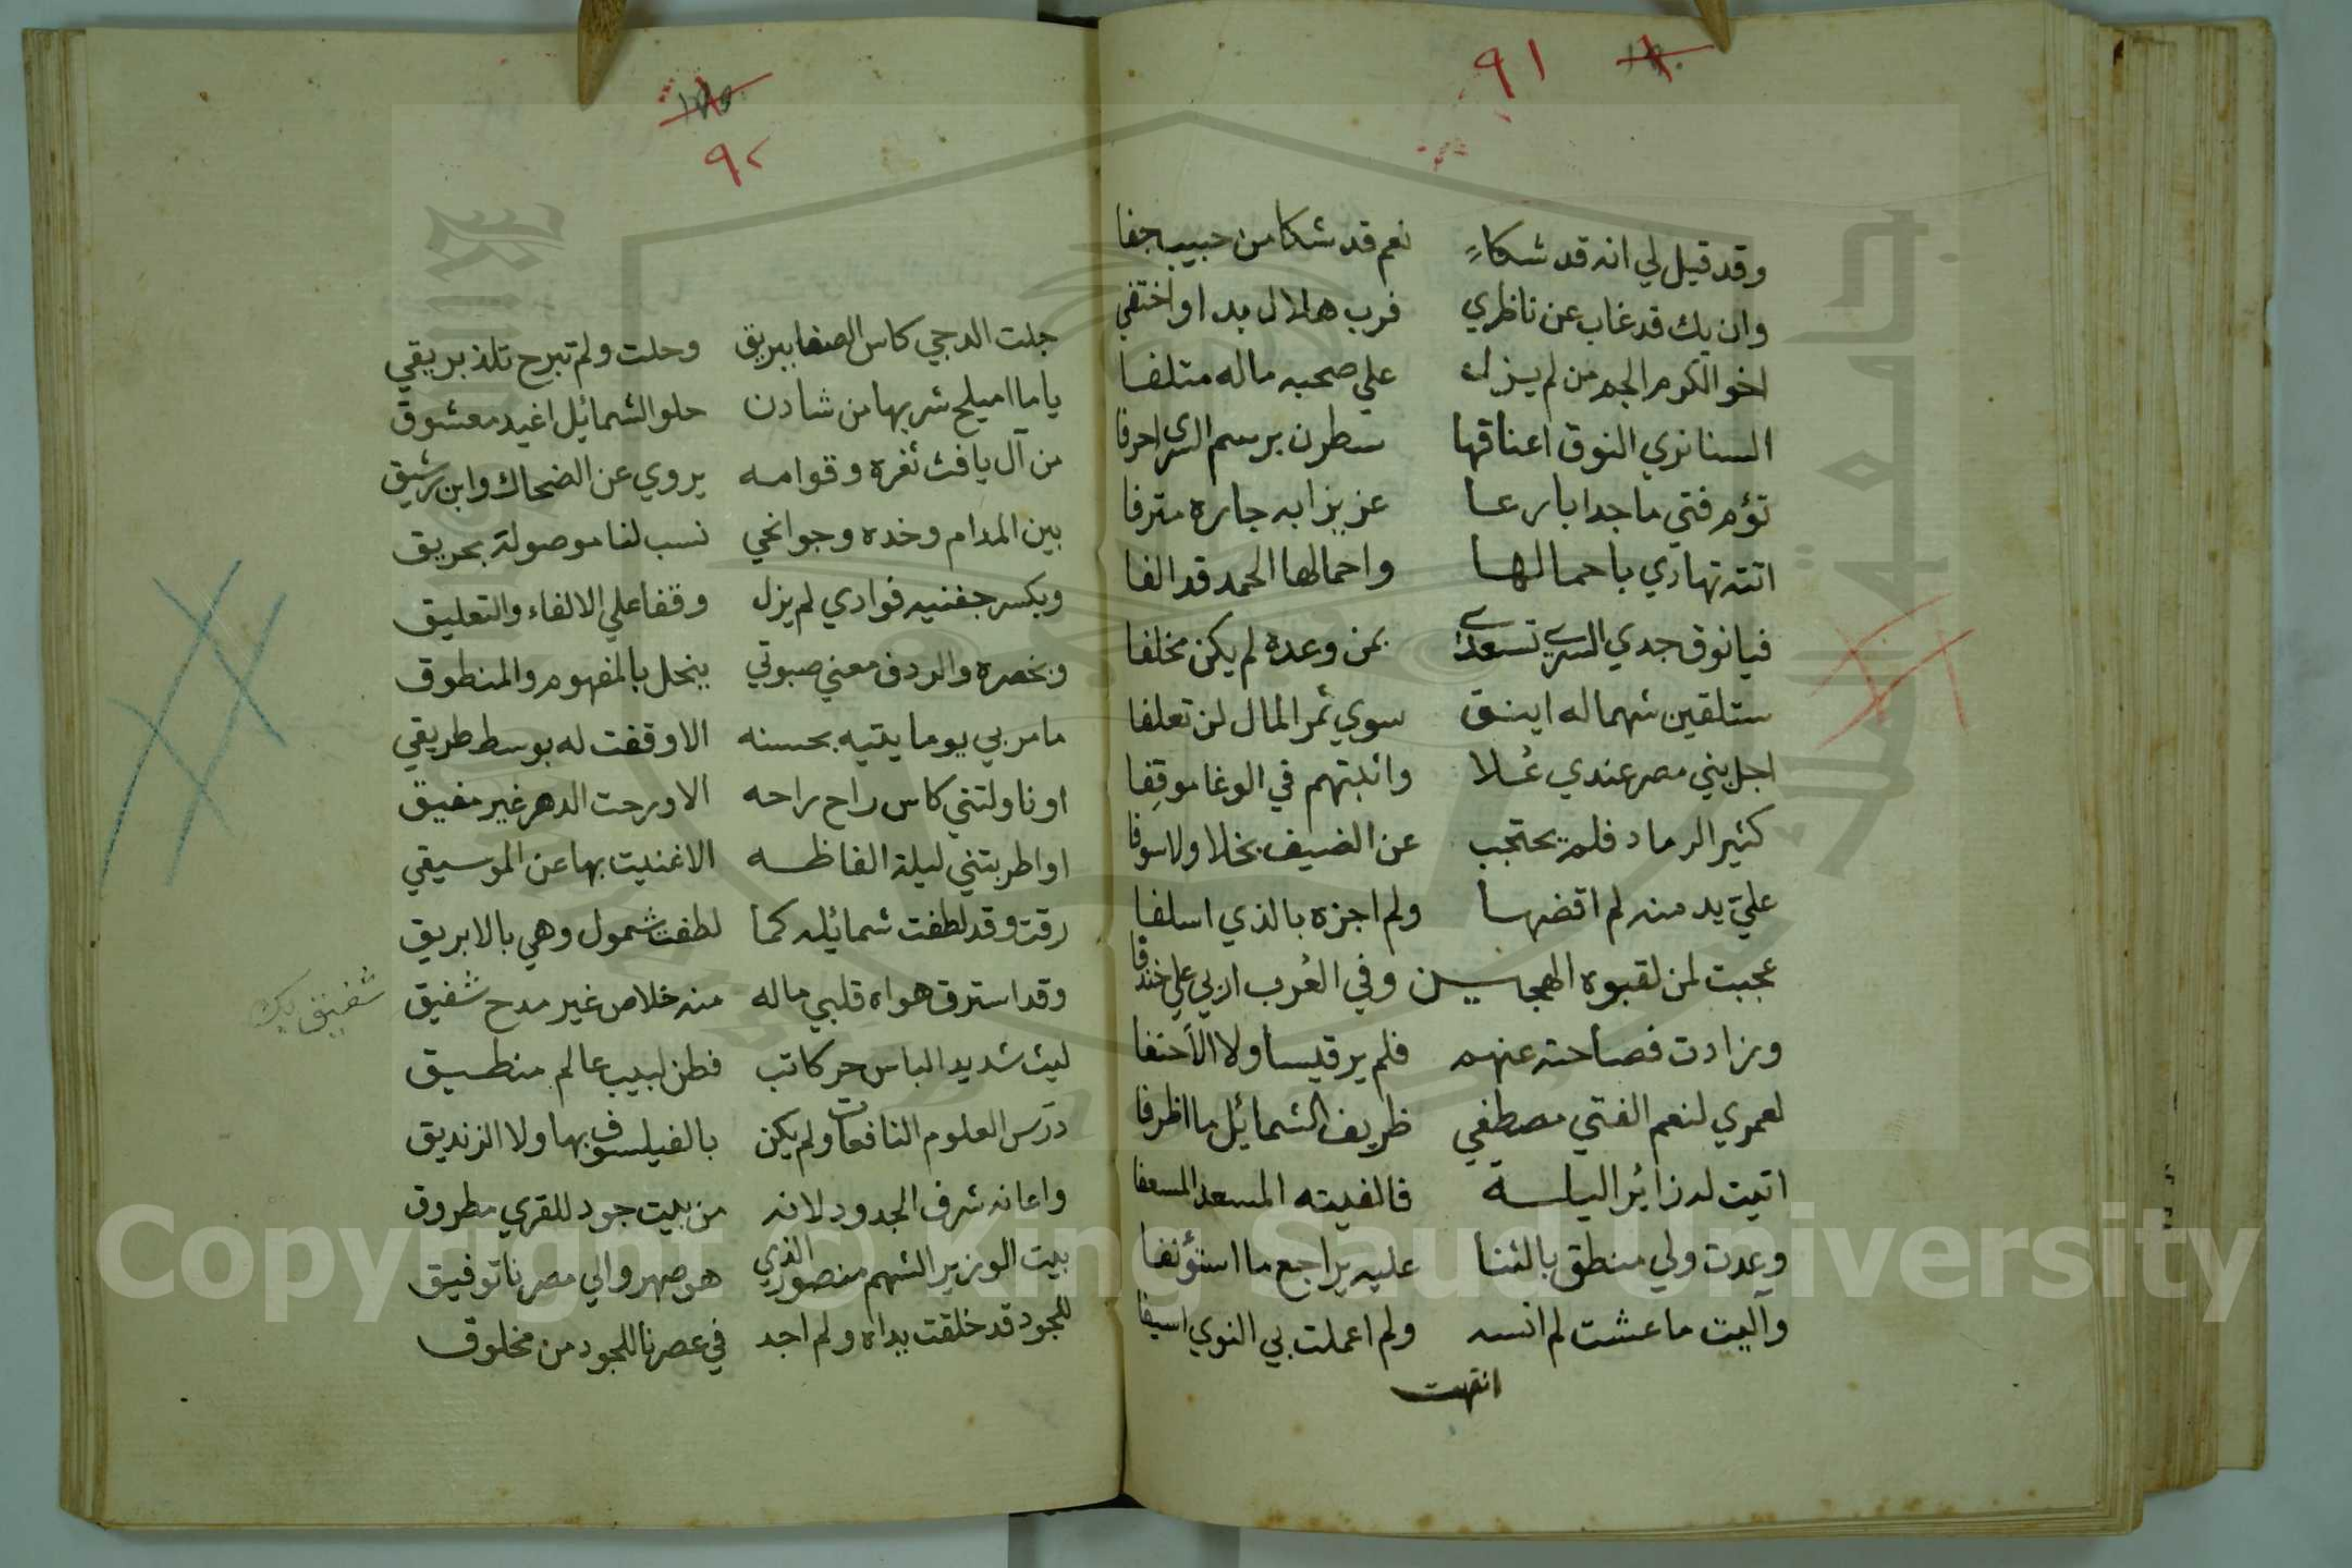 ٩١
وقد قيل لي انه قد شكاء نعم قد شكا من حبيب جفا
وان يك قد غاب عن ناظري فرب هلال بدا واختفي
اخو الكرم الجم من لم يزل علي صحبه ماله متلفا
السنا نري النوق اعناقها سطرن برسم السرى احرفا
تؤم فتي ماجدا بارعا عزيزا به جاره مترفا
اتته تهادي باحمالها واحمالها الحمد قد الفا
فيا نوق جدي السري تسعدي بمن وعده لم يكن مخلفا
ستلقين شهما له اينق سوي ثمر المال لن تعلفا
اجل بني مصر عندي عُلا واثبتهم في الوغا موقِفا
كثير الرماد فلم يحتجب عن الضيف بخلا ولا سوفا
عليّ يد منه لم اقضها ولم اجزه بالذي اسلفا
عجبت لمن لقبوه الهجين وفي العُرب اربي علي خندفا
وزادت فصاحته عنهم فلم ير قيسا ولا الأحنفا
لعمري لنعم الفتي مصطفي ظريف الشمائيل ما اظرفا
اتيت له زائر اليلة فالفيته المسعد المسعفا
وعدت ولي منطق بالثنا عليه يراجع ما استؤنفا
وآليت ما عشت لم انسه ولم اعملت بي النوي اسيفا
انتهت
٩٢
جلت الدجي كاس الصفا ببريق وحلت ولم تبرح تلذ بريقي
ياما اميلح شربها من شادن حلو الشمائيل اغيد معشوق
من آل يافث ثغره وقوامه يروي عن الضحاك وابن رشيق
بين المدام وخده وجوانحي نسب لنا موصولة بحريق
وبكسر جفنيه فوادي لم يزل وقفا علي الالغاء والتعليق
وبخصره والردف معني صبوتي ينحل بالمفهوم والمنطوق
ما مر بي يوما يتيه بحسنه الا وقفت له بوسط طريقي
او ناولتني كاس راح راحه الا ورحت الدهر غير مفيق
او اطربتني ليلة الفاظه الا غنيت بها عن الموسيقي
رقت وقد لطفت شمائيله كما لطفت شمول وهي بالابريق
وقد استرق هواه قلبي ماله منه خلاص غير مدح شفيق
شفيق بك
ليث شديد الباس حر كاتب فطن لبيب عالم منطيق
درَس العلوم النافعات ولم يكن بالفيلسوف بها ولا الزنديق
واعانه شرف الجدود لانه من بيت جود للقري مطروق
بيت الوزير الشهم منصور الذي هو صهر والي مصرنا توفيق
للجود قد خلقت يداه ولم اجد في عصرنا للجود من مخلوق
Copyright © King Saud University